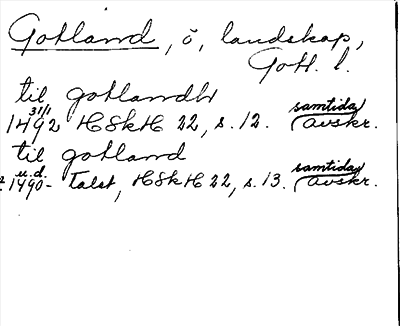 Gotland, ö, landskap,
Gotl. l.
til gotlandh
31/1 1492 HSkH 22, s. 12. samtida avskr.
til gotland
u.d. 1490-talet, HSkH 22, s. 13. samtida avskr.